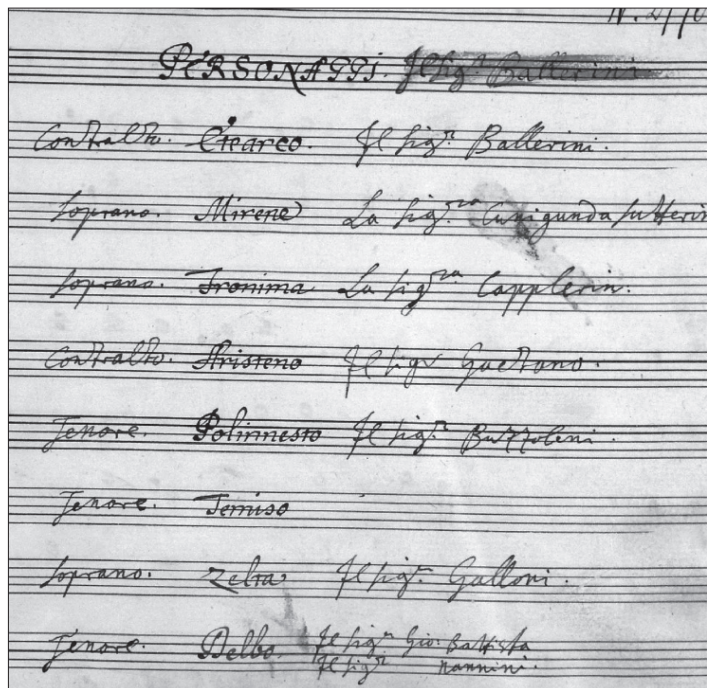 PERSONAGGI. Il Sig.r Ballerini
Contralto. Etearco. Il Sig.r Ballerini.
Soprano. Mirene La Sig.ra Cunigunda Sutterin
Soprano. Fronima La Sig.ra Capplerin.
Contralto. Aristeno Il Sig.r Gaetano.
Tenore. Polinnesto Il Sig.r Buzzoleni.
Tenore. Temiso
Soprano. Zelta Il Sig.r Galloni.
Tenore. Delbo. Il Sig.r Gio. Battista
Il Sig.r Nannini.